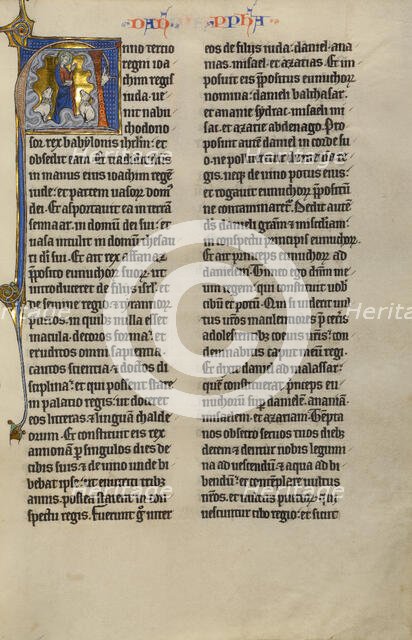 DANI EL PPHA
Anno tertio
regni ioa
chim regis
iuda ue
nit nabu
chodono
sor rex babylonis ihrlm: et
obsedit eam. Et tradidit dns
in manus eius ioachim regem
iude: et partem uasorum domus
dei. Et asportauit ea in terram
sennaar in domum dei sui: et
uasa intulit in domum thesau
ri dei sui. Et ait rex
pposito eunuchor suor ut
introduceret de filiis isrl. et
de semine regio et tyrannor
pueros. in quibus nulla esset
macula. decoros forma. et
eruditos omni sapientia.
cautos scientia. et doctos di
sciplina. et qui possent stare
in palatio regis. ut doceret
eos litteras et linguam chalde
orum. Et constituit eis rex
annonam p singulos dies de
cibis suis et de uino unde bi
bebat ipse. ut enutriti tribus
annis. postea starent in con
spectu regis. Fuerunt g inter
eos de filiis iuda. daniel. ana
nias. misael et azarias. Et im
posuit eis ppositus eunuchor
nomina. danieli balthasar
et ananie sydrac. misaeli mi
sac. et azarie abdenago. Pro
posuit autem daniel in corde su
o ne pollueretur de mensa
regis. neque de uino potus eius.
et rogauit eunuchor ppositum
ne contaminaretur. Dedit autem
deus danieli gratiam et misericordiam
in conspectu principis eunuchor.
Et ait princeps eunuchor ad
danielem. Timeo ego dominum me
um regem. qui constituit uob
cibum et potum. Qui si uiderit uul
tus uros macilentiores p ceteris
adolescentibus coeuis uris.
condemnabitis caput meum regi.
Et dixit daniel ad malassar.
quem constituerat princeps eu
nuchorum sup danielem. ananiam.
misaelem. et azariam. Tempta
nos obsecro seruos tuos diebus
decem. et dentur nobis legumi
na ad uescendum et aqua ad bi
bendum. et contemplare uultus
nros. et uultus puerorum qui
uescuntur cibo regio. et sicut
Heritage Images